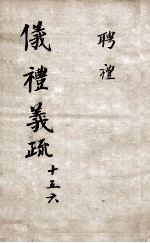 聘禮
儀禮義疏 十五六